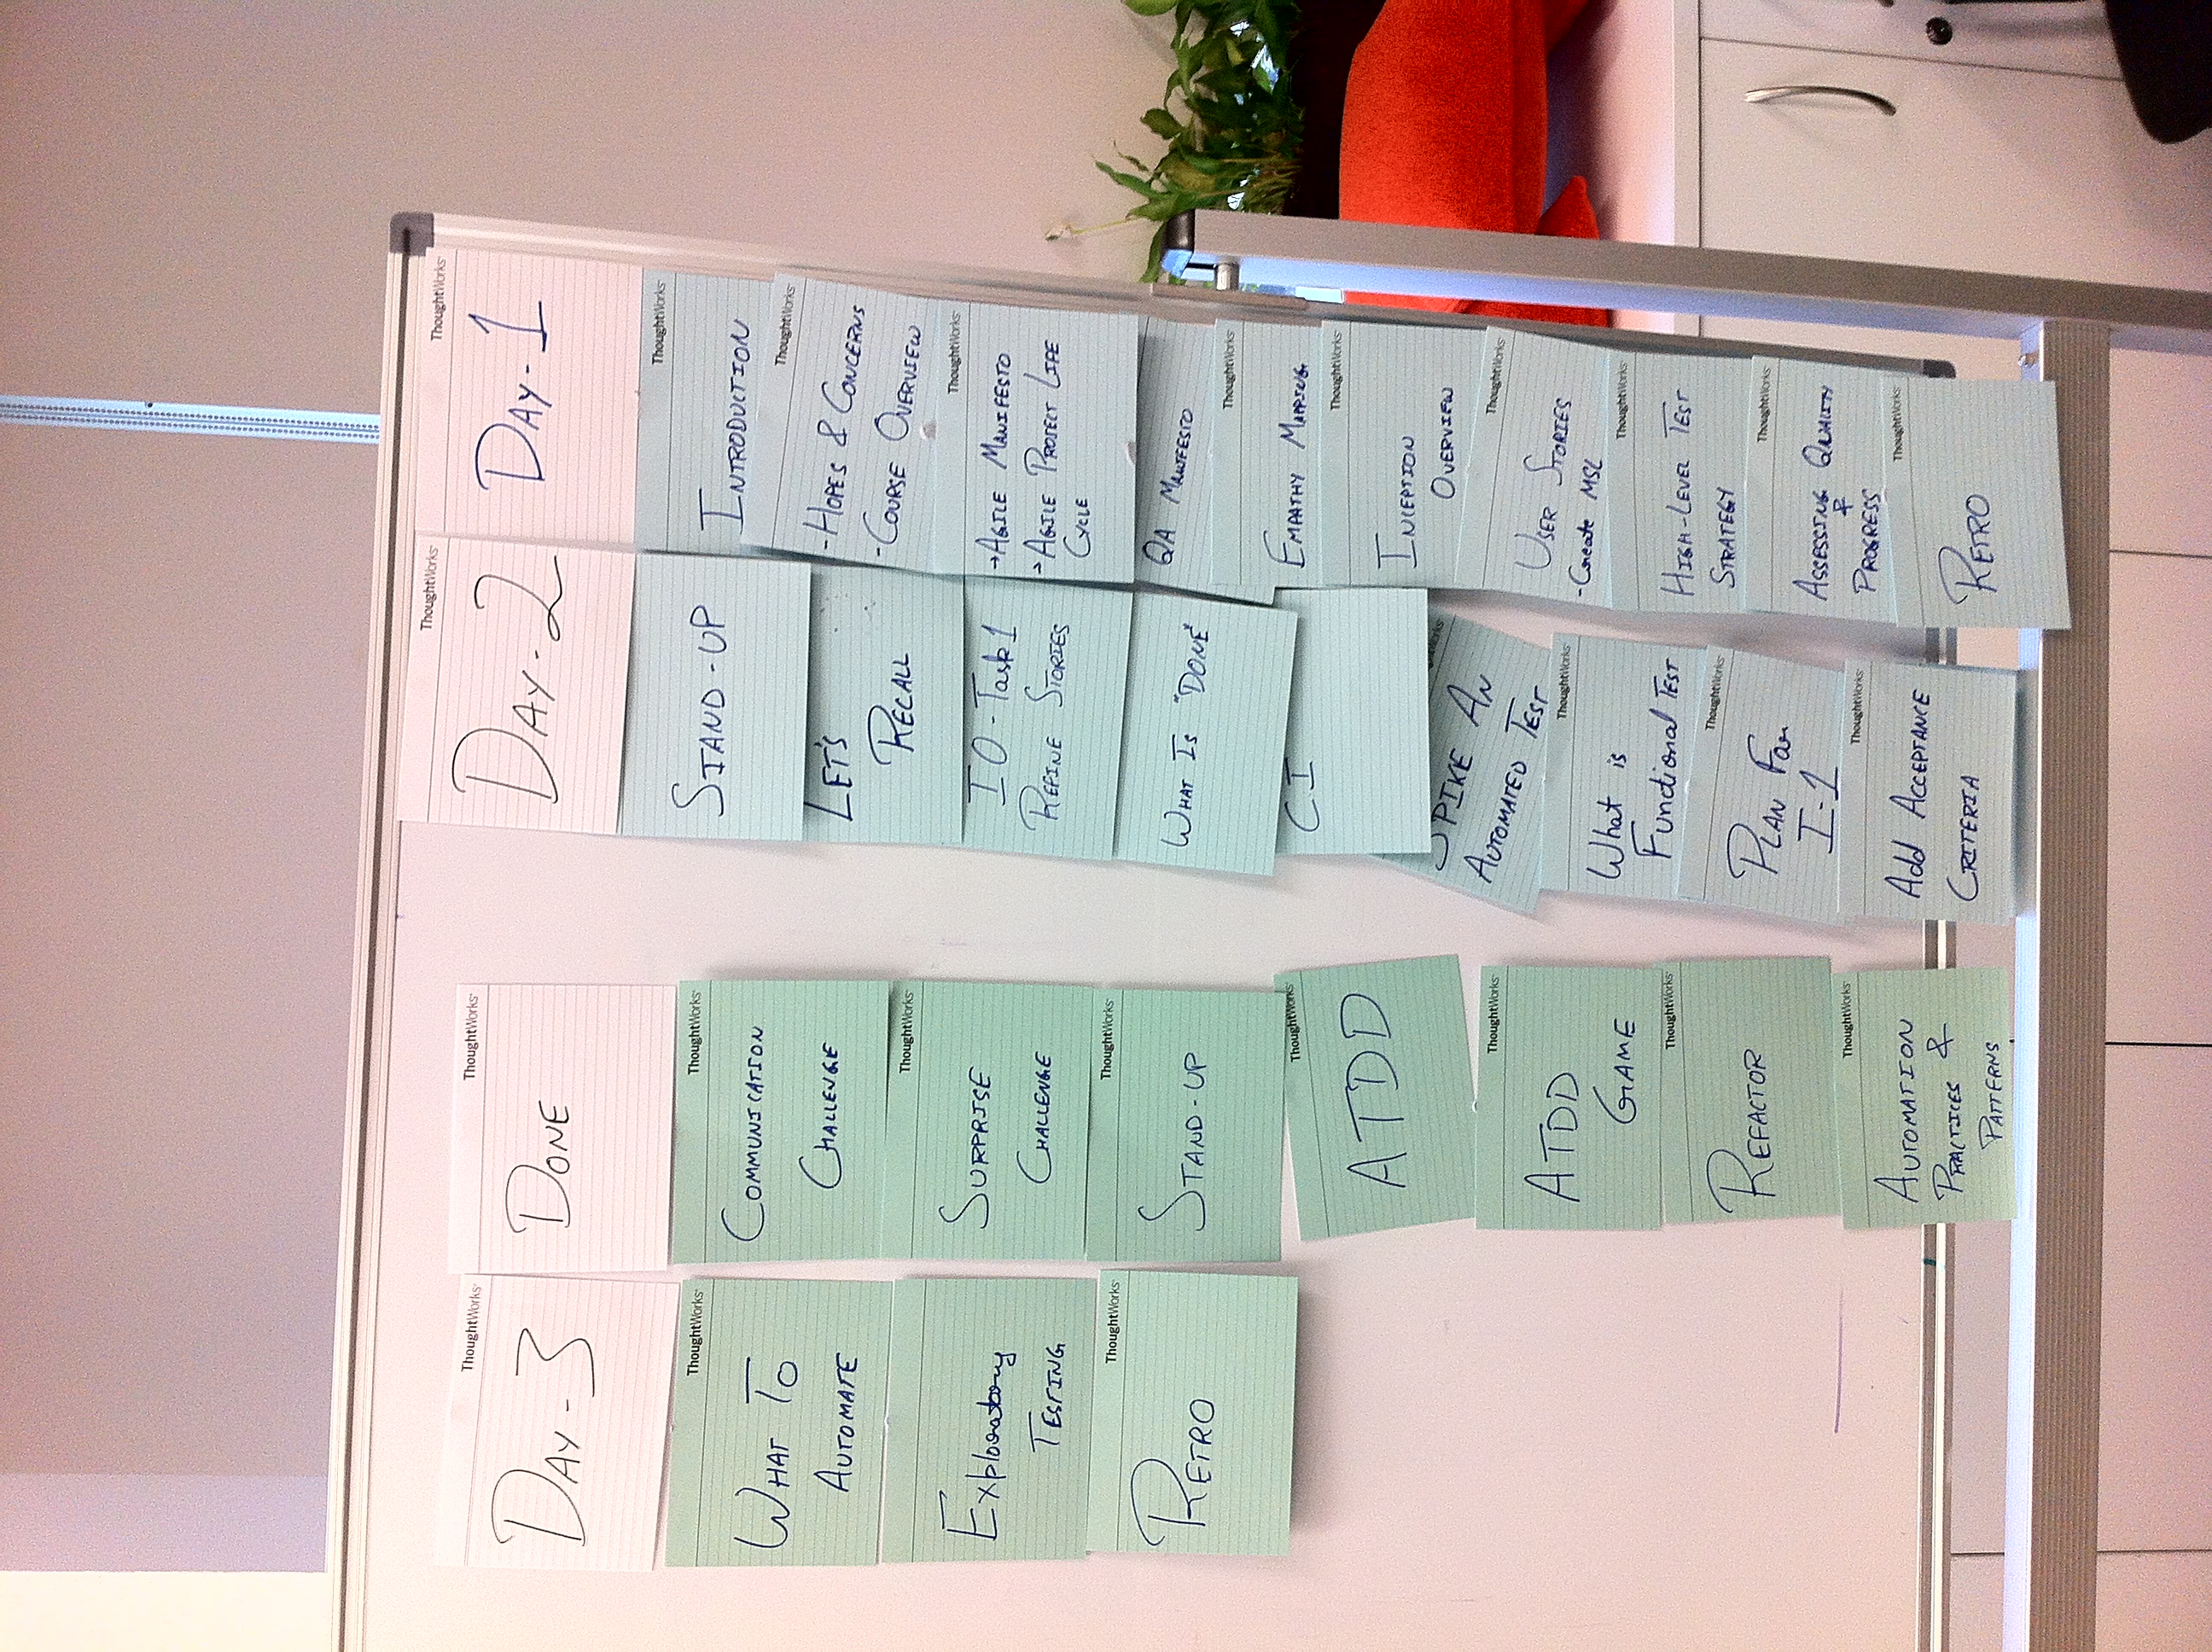 ThoughtWorks
DAY-3
ThoughtWorks
WHAT TO
AUTOMATE
Exploratory
TESTING
ThoughtWorks
RETRO
ThoughtWorks
DONE
ThoughtWorks
COMMUNICATION
CHALLENGE
ThoughtWorks
SURPRISE
CHALLENGE
ThoughtWorks
STAND-UP
ThoughtWorks
ATDD
ThoughtWorks
ATDD
GAME
ThoughtWorks
REFACTOR
ThoughtWorks
AUTOMATION
PRACTICES &
PATTERNS
ThoughtWorks
DAY-2
STAND-UP
LET'S
RECALL
IO-Task1
REFINE STORIES
WHAT IS "DONE"
CI
SPIKE AN
AUTOMATED TEST
ThoughtWorks
What is
Functional TEST
ThoughtWorks
PLAN For
I-1
ThoughtWorks
Add ACCEPTANCE
CRITERIA
ThoughtWorks
DAY-1
ThoughtWorks
INTRODUCTION
ThoughtWorks
-HOPES & CONCERNS
-COURSE OVERVIEW
ThoughtWorks
→AGILE MANIFESTO
→AGILE PROJECT LIFE
CYCLE
QA MANIFESTO
ThoughtWorks
EMPATHY MAPPING
ThoughtWorks
INCEPTION
OVERVIEW
ThoughtWorks
USER STORIES
-Create MSL
ThoughtWorks
HIGH-LEVEL TEST
STRATEGY
ThoughtWorks
ASSESSING QUALITY
&
PROGRESS
ThoughtWorks
RETRO